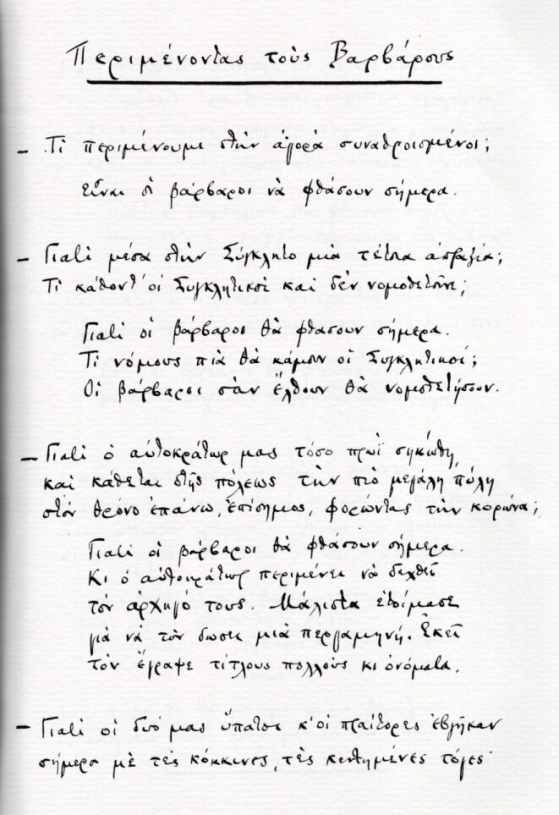 Περιμένοντας τοὺς Βαρβάρους
– Τί περιμένουμε στὴν ἀγορὰ συναθροισμένοι;
Εἶναι οἱ βάρβαροι νὰ φθάσουν σήμερα.
– Γιατί μέσα στὴν Σύγκλητο μιὰ τέτοια ἀπραξία;
Τί κάθοντ' οἱ Συγκλητικοὶ καὶ δὲν νομοθετοῦνε;
Γιατὶ οἱ βάρβαροι θὰ φθάσουν σήμερα.
Τί νόμους πιὰ θὰ κάμουν οἱ Συγκλητικοί;
Οἱ βάρβαροι σὰν ἔλθουν θὰ νομοθετήσουν.
– Γιατί ὁ αὐτοκράτωρ μας τόσο πρωῒ σηκώθη,
καὶ κάθεται στῆς πόλεως τὴν πιὸ μεγάλη πύλη
στὸν θρόνο ἐπάνω, ἐπίσημος, φορώντας τὴν κορώνα;
Γιατὶ οἱ βάρβαροι θὰ φθάσουν σήμερα.
Κι ὁ αὐτοκράτωρ περιμένει νὰ δεχθεῖ
τὸν ἀρχηγό τους. Μάλιστα ἑτοίμασε
γιὰ νὰ τὸν δώσει μιὰ περγαμηνή. Ἐκεῖ
τὸν ἔγραψε τίτλους πολλοὺς κι ὀνόματα.
– Γιατί οἱ δυό μας ὕπατοι κ' οἱ πραίτορες ἐβγῆκαν
σήμερα μὲ τὲς κόκκινες, τὲς κεντημένες τόγες·